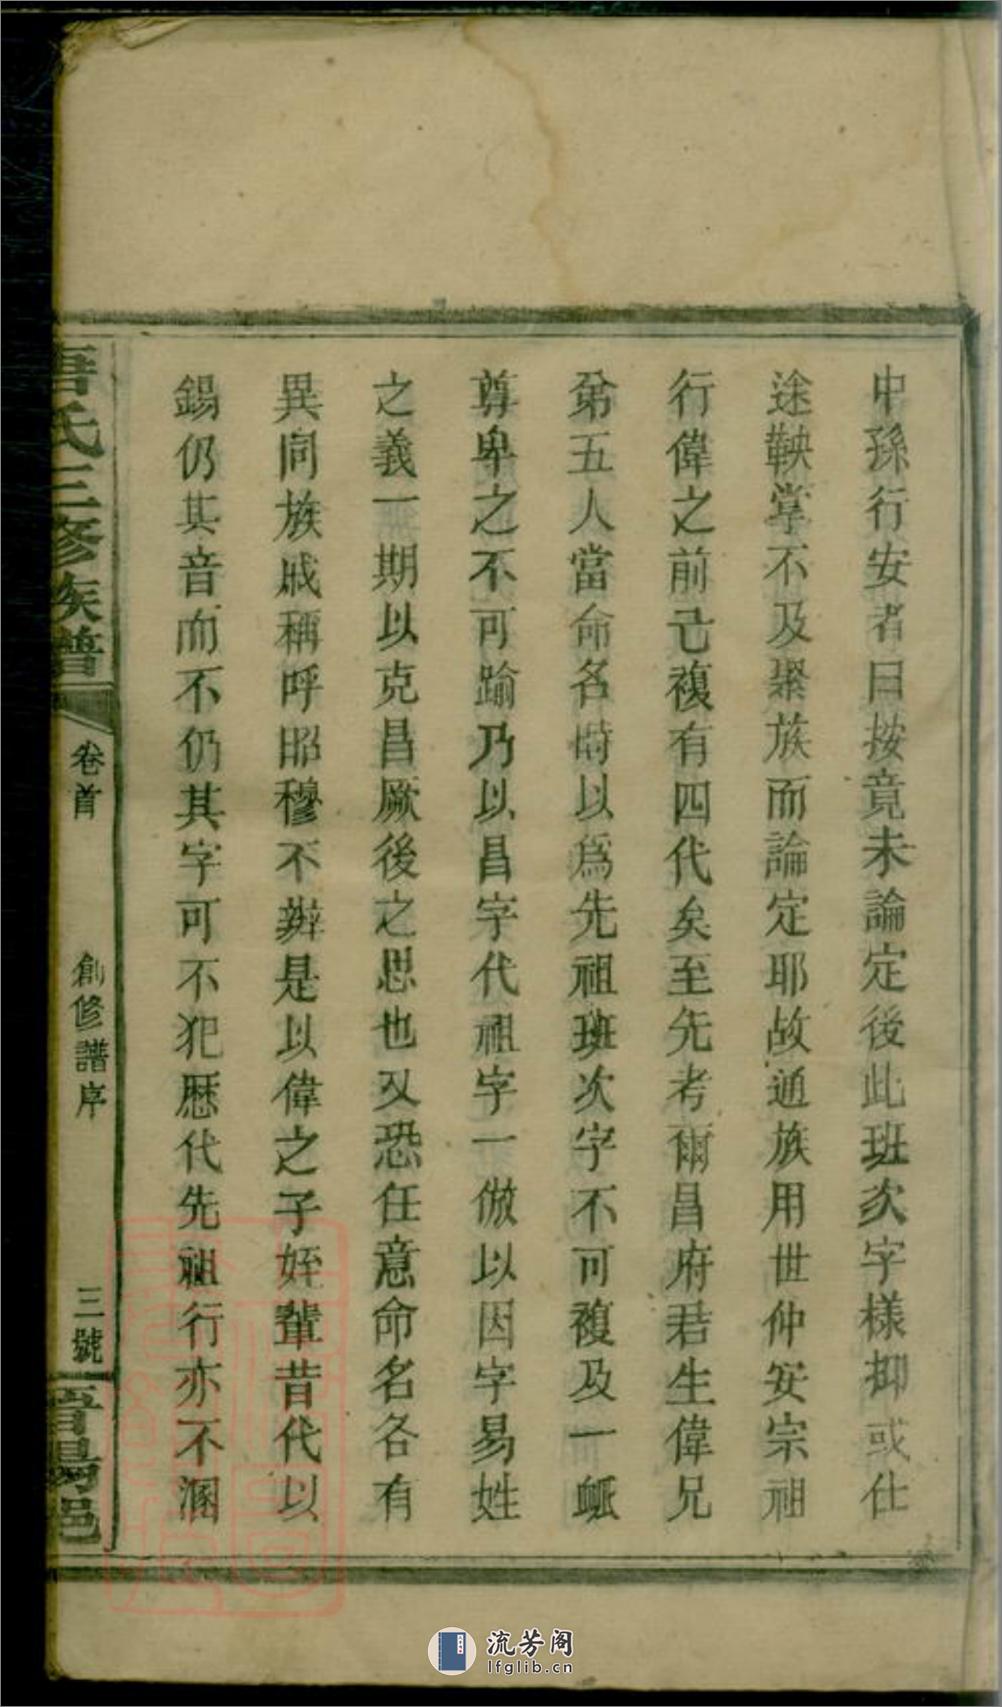 中孫行安者曰按竟未論定後此班次字樣抑或仕
途鞅掌不及聚族而論定耶故通族用世仲安宗祖
行偉之前已複有四代矣至先考爾昌府君生偉兄
弟五人當命名時以爲先祖班次字不可複及一輒
尊卑之不可踰乃以昌字代祖字一倣以因字易姓
之義一期以克昌厥後之思也又恐任意命名各有
異同族戚稱呼昭穆不辨是以偉之子姪輩昔代以
錫仍其音而不仍其字可不犯歷代先祖行亦不溷
唐氏三修族譜
卷首
創修譜序
三號
晋陽邑
流芳阁
lfglib.cn